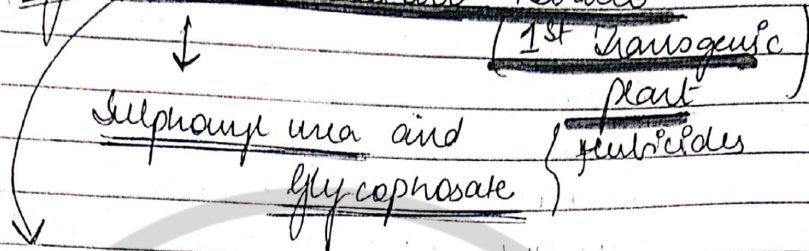 (1st Transgenic
plant)
Sulphonyl urea and
Glycophosate } herbicides